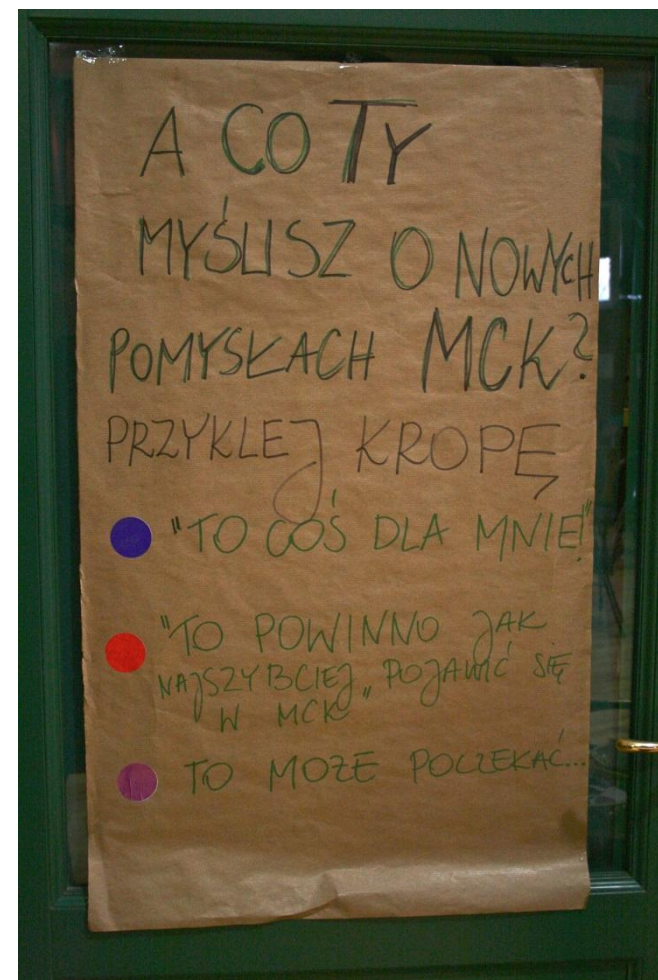 A CO TY
MYŚLISZ O NOWYCH
POMYSŁACH MCK?
PRZYKLEJ KROPĘ
"TO COŚ DLA MNIE!"
"TO POWINNO JAK
NAJSZYBCIEJ" POJAWIĆ SIĘ
W MCK
TO MOŻE POCZEKAĆ...